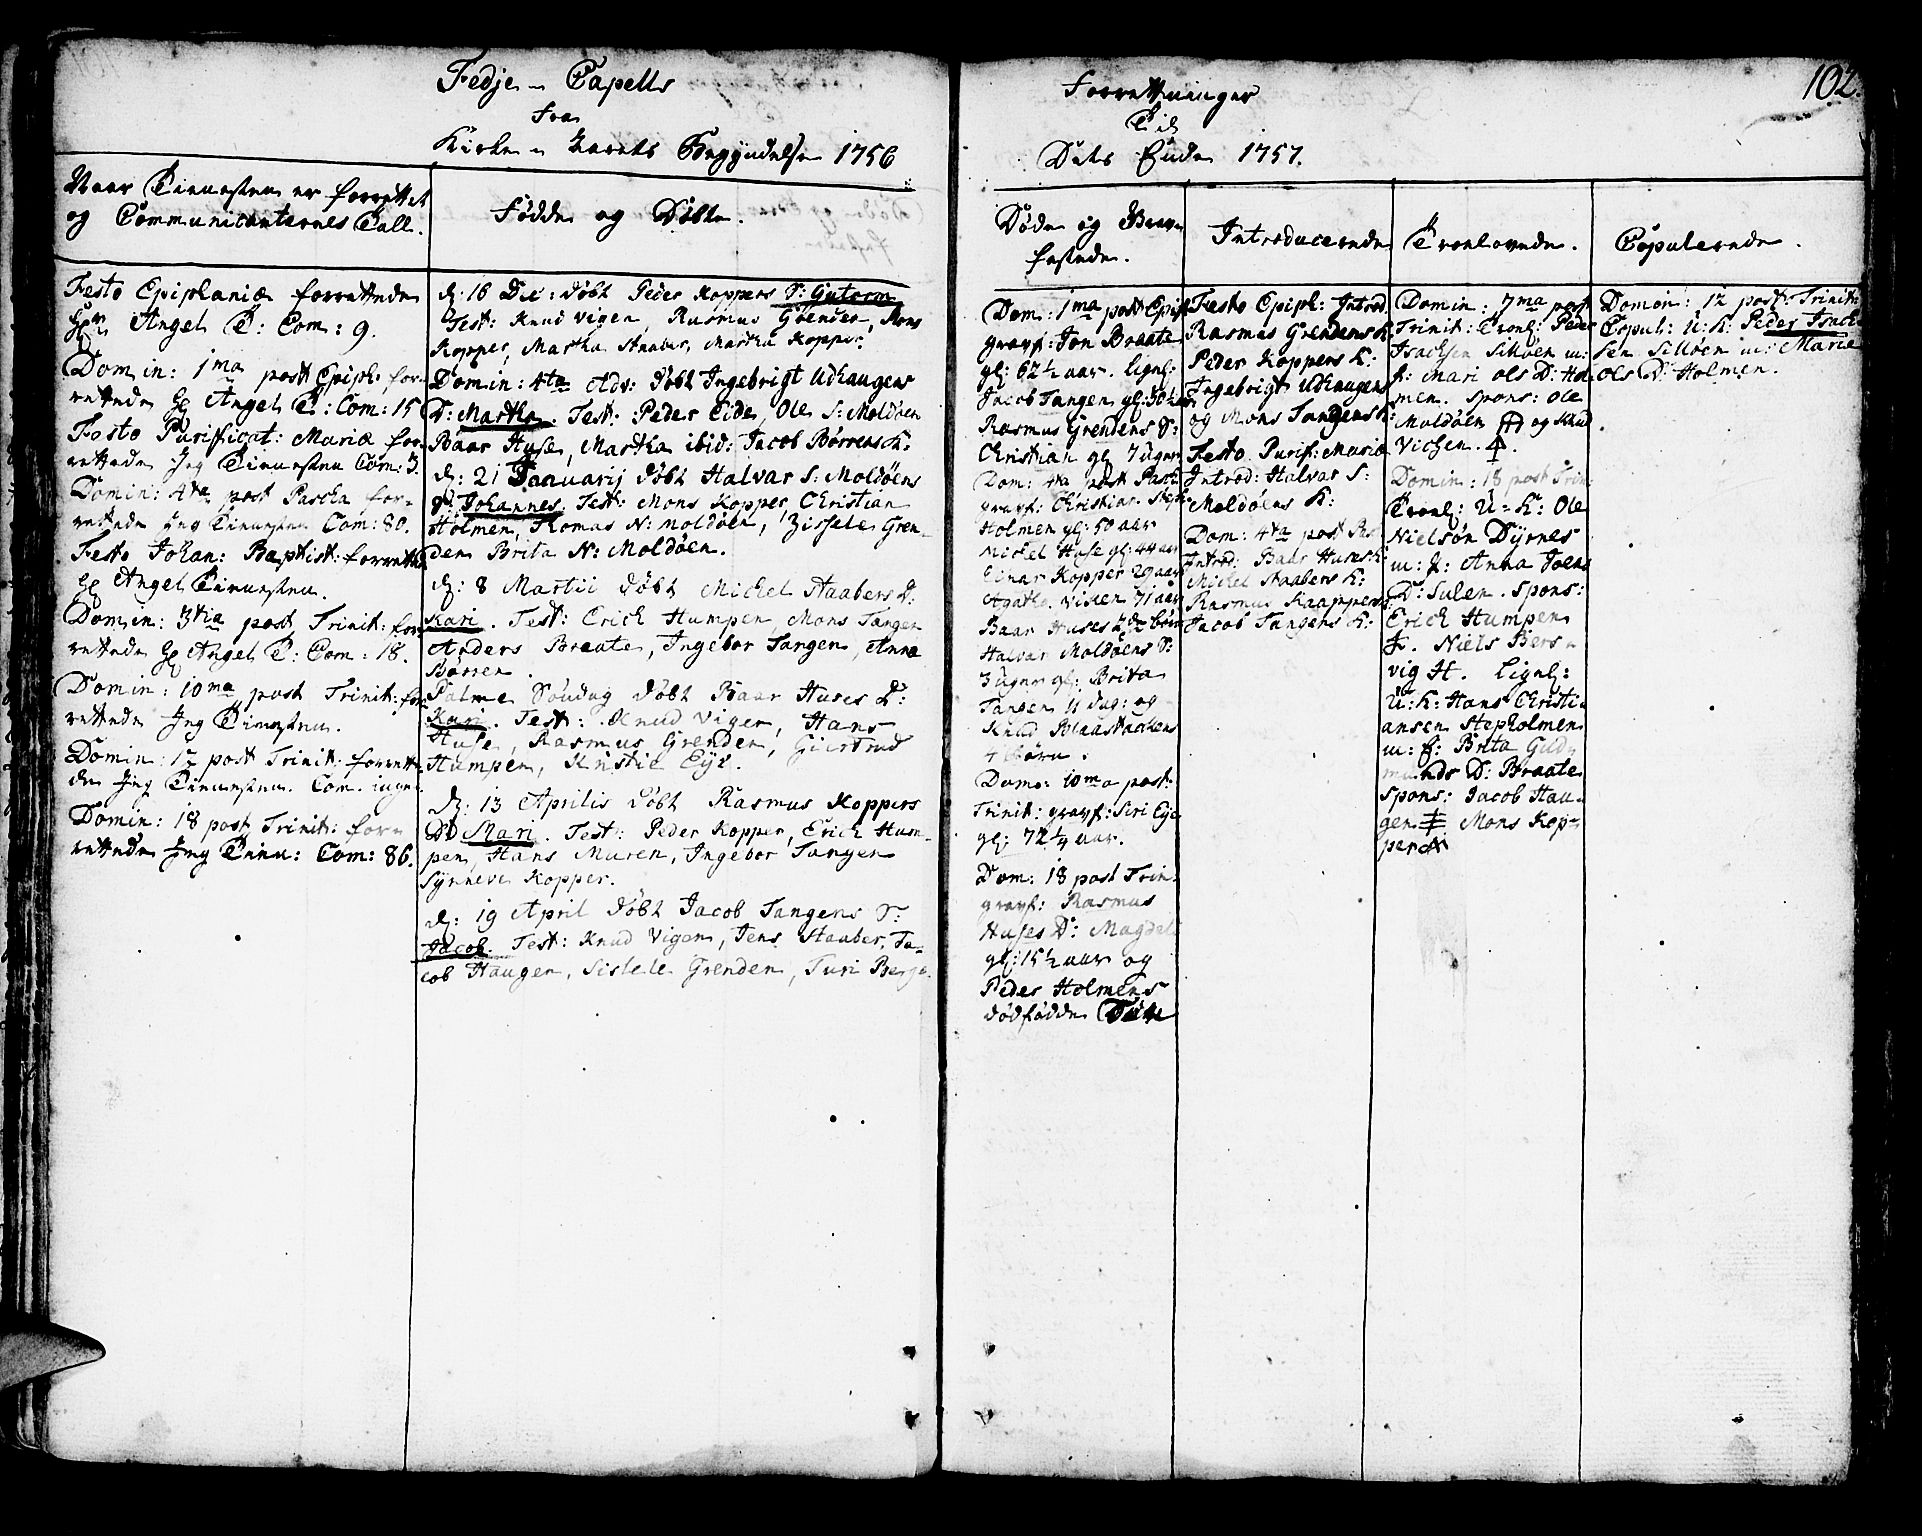 Fedje - Capells
fra
Kirke - Aarets Begyndelse 1756
Naar Tienesten er forrettet
og Communicanternes Tall.
Fødde og Døbte.
Festo Epiphaniæ forrettede
Hr Angel T: Com: 9.
Domin: 1ma post Epiph: for-
rettede Hr Angel T: Com: 15
Festo Purificat: Mariæ for-
rettede Jeg Tienesten Com: 3.
Domin: 4ta post Pascha for-
rettede Jeg Tienesten Com: 80.
Festo Johan: Baptist: forrettede
Hr Angel Tienesten.
Domin: 3tia post Trinit: for-
rettede Hr Angel T: Com: 18.
Domin: 10ma post Trinit: for-
rettede Jeg Tienesten.
Domin: 12 post Trinit: forrette-
de Jeg Tienesten. Com. ingen
Domin: 18 post Trinit: for-
rettede Jeg Tiene: Com: 86.
d: 16 Dec: døbt Peder Koppers S: Gutorm
Test: Knud Vigen, Rasmus Grenden, Mons
Kopper, Martha Staaber, Martha Kopper.
Domin: 4ta Adv: døbt Ingebrigt Udhaugens
D: Martha. Test: Peder Eide, Ole S: Moldøen
Baar Huse, Martha ibid: Jacob Børrens K:
d: 21 Januarij døbt Halvar S: Moldøens
S: Johannes. Test: Mons Kopper, Christian
Holmen, Thomas N: Moldøen, Zissele Gren-
den Brita N: Moldøen.
d: 8 Martii døbt Michel Staabers D:
Kari. Test: Erich Humpen, Mons Tangen
Anders Braate, Ingebor Tangen, Anna
Børren.
Palme Søndag døbt Baar Huses D:
Kari. Test: Knud Vigen, Hans
Huse, Rasmus Grenden, Giertrud
Humpen, Kristie Eye.
d: 13 Aprilis døbt Rasmus Koppers
D Mari. Test: Peder Kopper, Erich Hum-
pen, Hans Muren, Ingebor Tangen
Synneve Kopper.
d: 19 April døbt Jacob Tangens S:
Jacob. Test: Knud Vigen, Jens Staaber, Ja-
cob Haugen, Sislele Grenden, Turi Berge.
102.
Forrettninger
Til
Dets Ende 1757.
Døde og Begra-
festede.
Introducerede
Troelovede.
Copulerede.
Dom: 1ma post Epiph
gravf: Jon Braate
gl: 62 1/2 aar. ligel:
Jacob Tangen gl: 30 aar
Rasmus Grendens S:
Christian gl 7 uger
Dom: 4ta post Pasch
gravf: Christian Step-
Holmen gl: 50 aar
Michel Huse gl: 44 aar
Einar Kopper 29 aar
Agatha Viken 71 aar
Baar Huses 2de børn
Halvar Moldøens S:
3 uger gl: Brita
Tangen 11 dag: og
Knud
4 børn.
Dom: 10ma post
Trinit: gravf: Siri Eye
gl: 72 1/4 aar.
Dom: 18 post Trin:
gravf: Rasmus
Huses D: Magdel:
gl: 15 1/2 aar og
Peder Holmens
dødfødde
Festo Epiph: Introd:
Rasmus Grendens K:
Peder Koppers K:
Ingebrigt Udhaugens
og Mons Tangens K:
Festo Purif: Mariæ
Introd: Halvar S:
Moldøens K:
Dom: 4ta post Pa:
Introd: Baar Huses K:
Michel Staabers K:
Rasmus Kaappers K:
Jacob Tangens K:
Domin: 7ma post
Trinit: Troel: Peder
Isachsen Silløen m:
f: Mari Ols D: Hol-
men. Spons: Ole
Moldøen og Knud
Vichen.
Domin: 18 post Trin:
Troel: U: K: Ole
Nielsøn Dyrnes
m: f: Anna Joens
D: Sulen. Spons:
Erich Humpen
Niels Bers-
vig H. Ligel:
U: K: Hans Christi-
ansen Stepholmen
m: f: Brita Gud-
munds D: Braate
Spons: Jacob Hau-
gen Mons Kop-
per
Domin: 12 post: Trinit:
Copul: U: K: Peder Isach-
sen Silløen m: Marie
Ols D: Holmen.